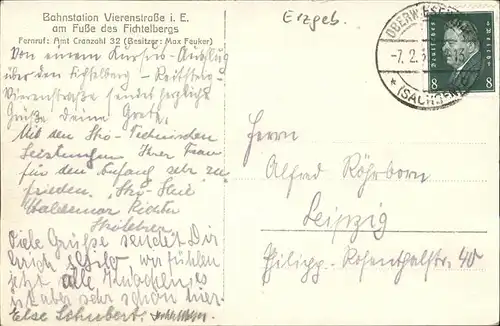 Bahnstation Vierenstraße i. E.
am Fuße des Fichtelbergs
Fernruf: Amt Cranzahl 32 (Besitzer: Max Feuker)
Erzgeb.
OBERWIESENTHAL
-7.2.3
(SACHSEN)
Deutsches Reich
8 8
Von einem Kursus-Ausflug
über den Fichtelberg - 
Vierenstraße sendet herzliche
Grüße deine Grete.
Mit den Ski-Technischen
Leistungen Ihrer Frau
für den Anfang sehr zu
frieden. "Ski-Heil"
Waldemar Richter
Skilehrer
Viele Grüße sendet Dir
wir fühlen
jetzt alle Knochen, es
ist aber sehr schön hier
Else Schubert.
Herrn
Alfred Röhrborn
Leipzig
Philipp-Rosenthalstr. 40